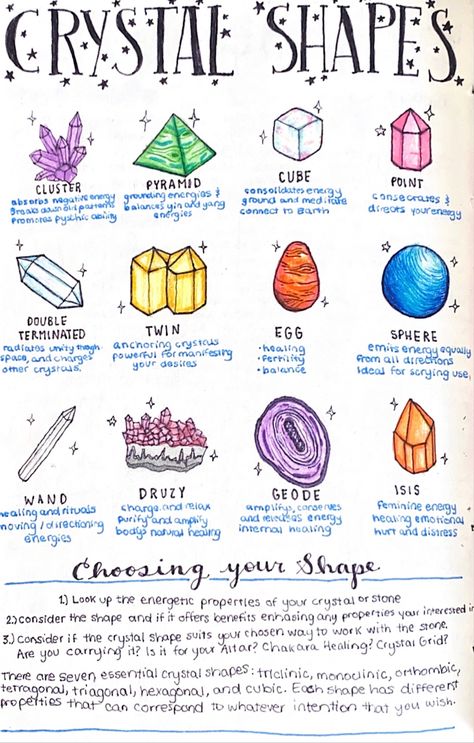 CRYSTAL SHAPES
CLUSTER
absorbs negative energy
Breaks down old patterns
Promotes pyschic ability
PYRAMID
grounding energies &
balances yin and yang
energies
CUBE
consolidates energy
ground and meditate
connect to Earth
POINT
consecrates &
directs your energy
DOUBLE
TERMINATED
radiates unity though
space, and charges
other crystals.
TWIN
anchoring crystals
powerful for manifesting
your desires
EGG
• healing
• fertility
• balance
SPHERE
emits energy equally
from all directions
Ideal for scrying use.
WAND
healing and rituals
moving / directioning
energies
DRUZY
charge and relax
Purify and amplify
bodys natural healing
GEODE
amplifys, conserves
and releases energy
internal healing
ISIS
feminine energy
healing emotional
hurt and distress
Choosing your Shape
1.) Look up the energetic properties of your crystal or stone
2.) consider the shape and if it offers benefits enhasing any properties your interested in
3.) Consider if the crystal shape suits your chosen way to work with the stone.
Are you carrying it? Is it for your Altar? Chakara Healing? Crystal Grid?
There are seven essential crystal shapes: triclinic, monoclinic, orthombic,
tetragonal, triagonal, hexagonal, and cubic. Each shape has different
properties that can correspond to whatever intention that you wish.